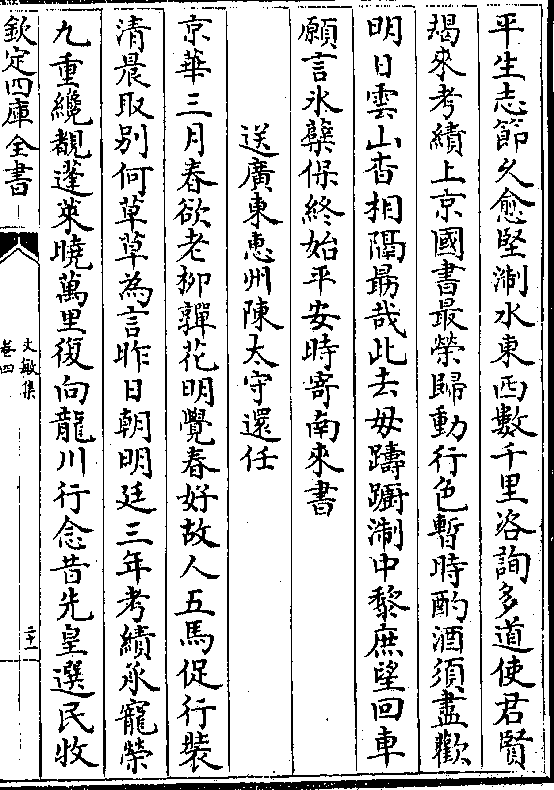 平生志節久愈堅淛水東西數千里咨詢多道使君賢
朅來考績上京國書最榮歸動行色暫時酌酒須盡歡
明日雲山杳相隔勗哉此去毋躊躕淛中黎庶望回車
願言氷蘗保終始平安時寄南來書
送廣東惠州陳太守還任
京華三月春欲老柳嚲花明覺春好故人五馬促行裝
清晨取别何草草為言昨日朝明廷三年考績承寵榮
九重纔覩蓬萊曉萬里復向龍川行念昔先皇選民牧
欽定四庫全書
文敏集
卷四
二十一